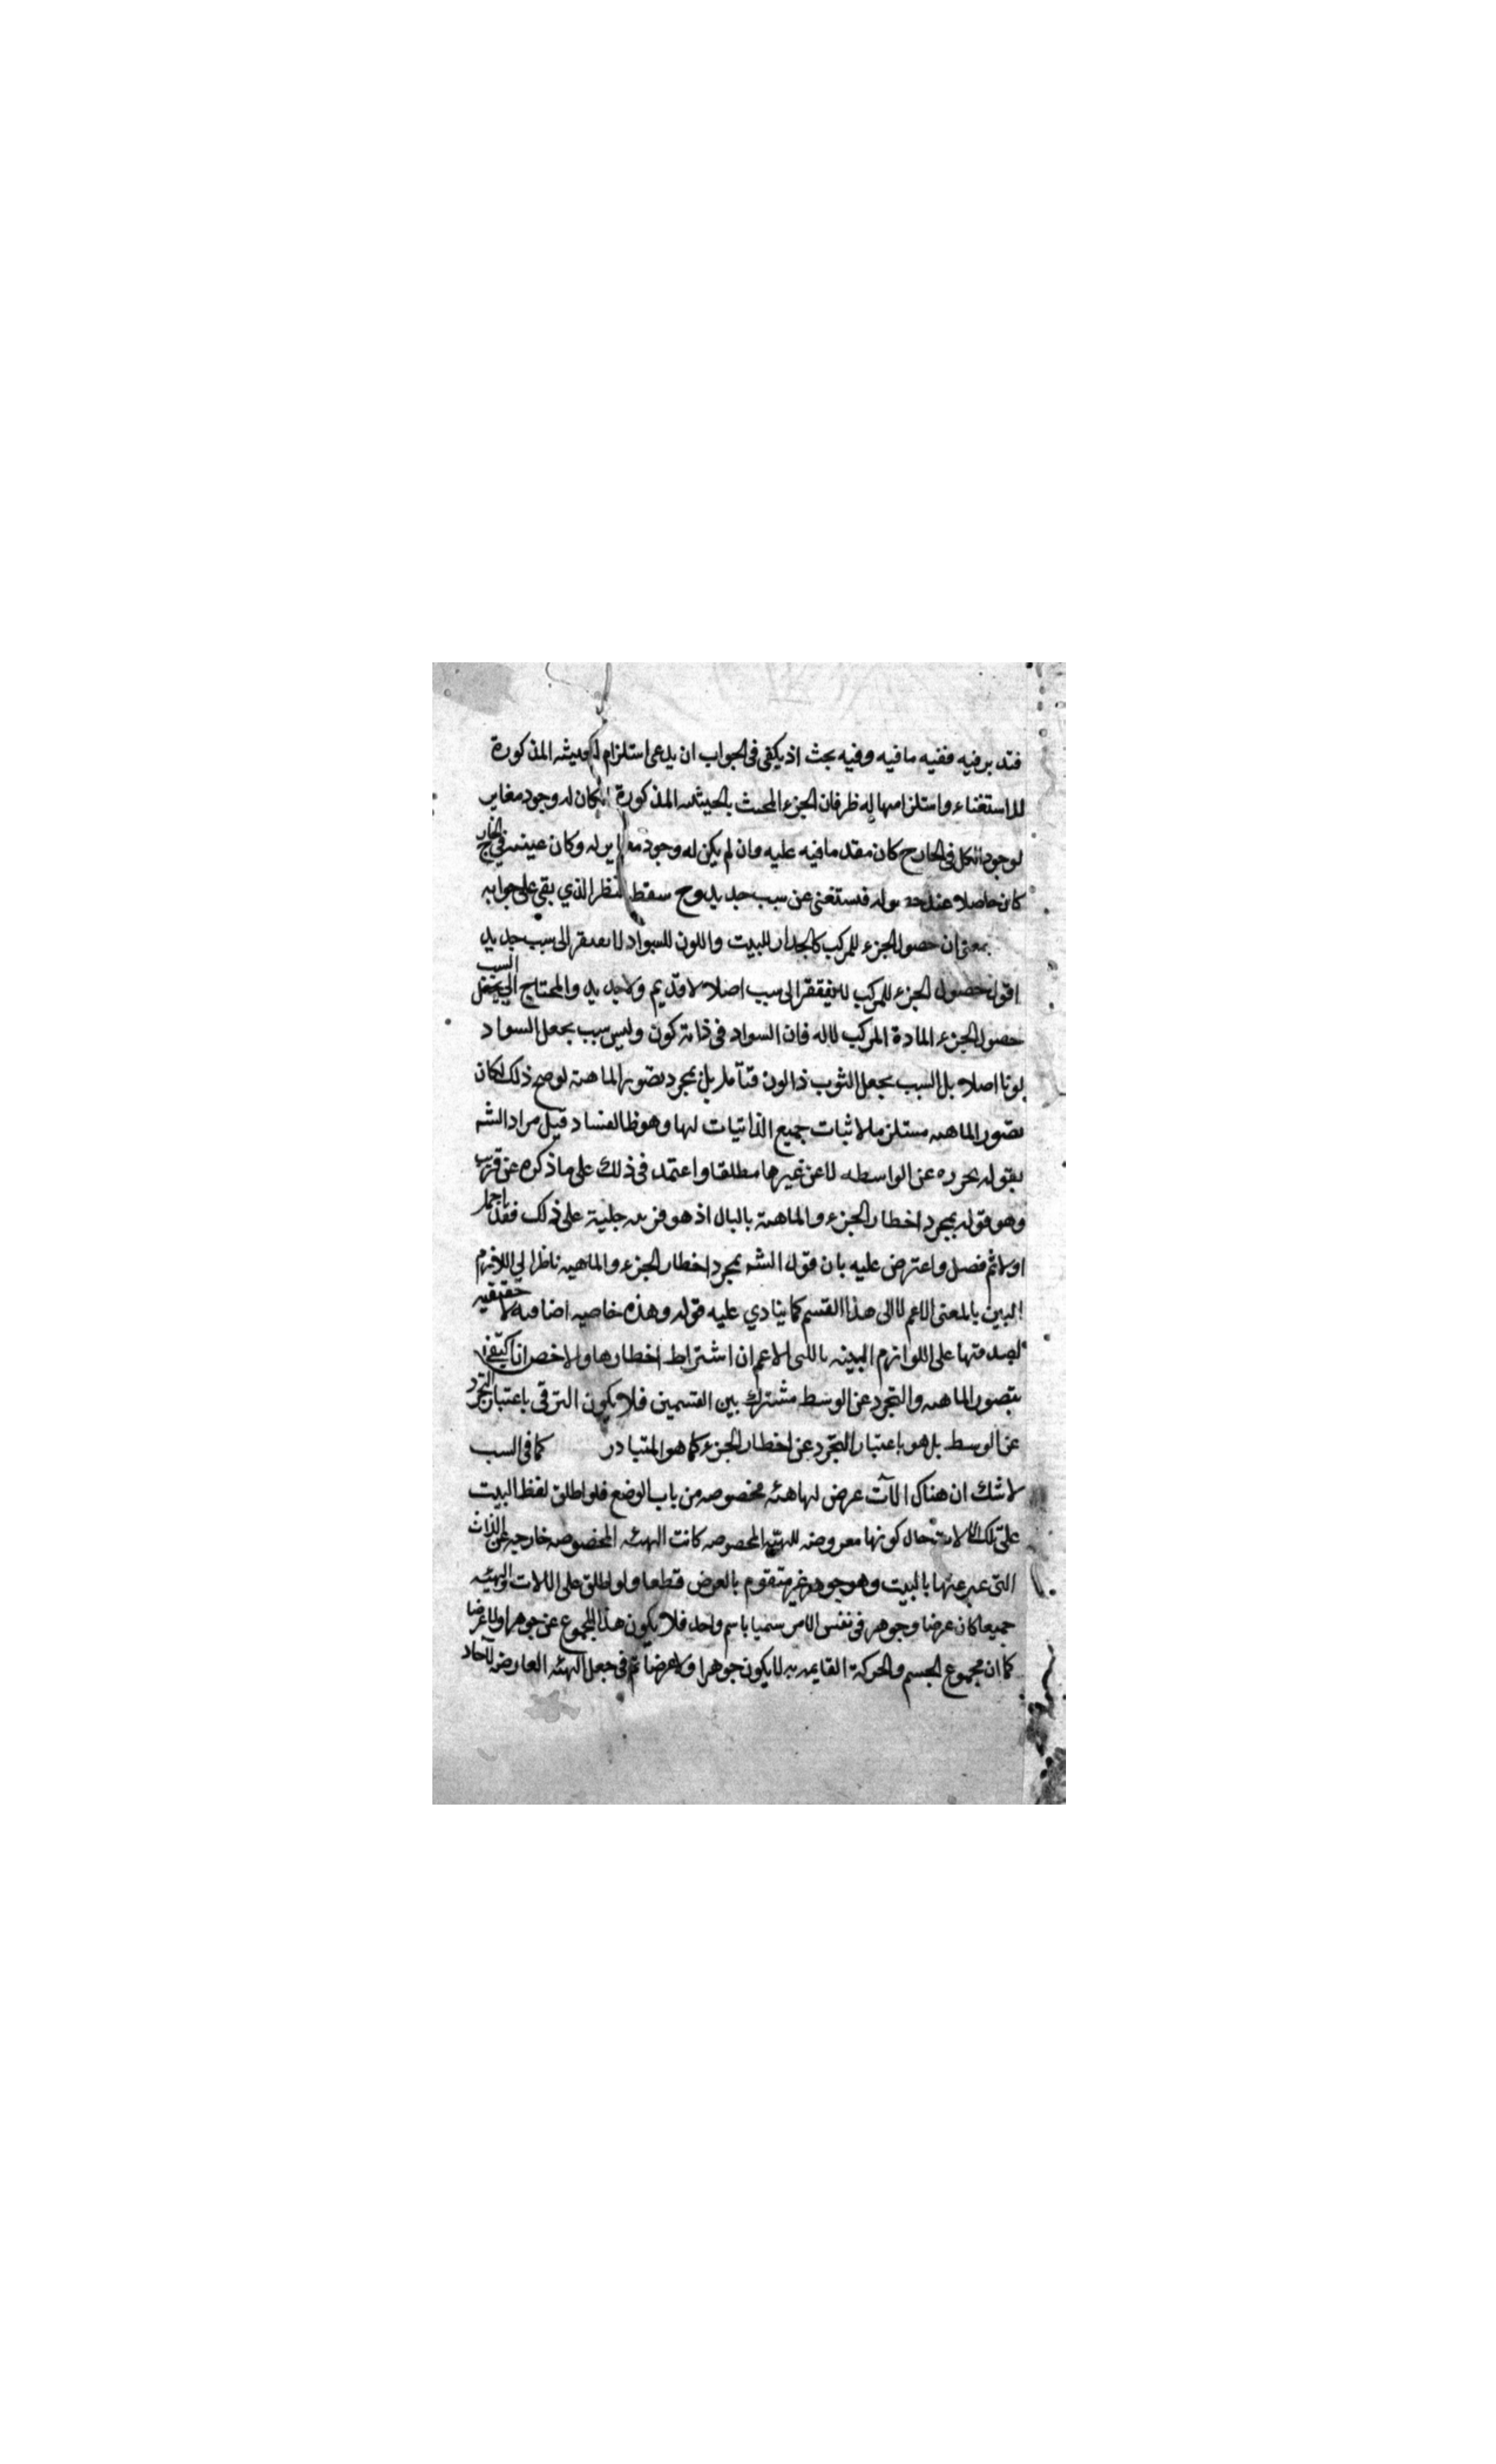 فتدبر فيه ففيه ما فيه وفيه بحث اذ يكفى فى الجواب ان يدعى استلزام الحيثية المذكورة
للاستغناء واستلزامها له ظ فان الجزء المحيث بالحيثية المذكورة ان كان له وجود مغاير
لوجود الكل فى الخارج كان مقدما فيه عليه وان لم يكن له وجود مغاير له وكان عينه فى الخارج
كان حاصلا عند حصوله فيستغنى عن سبب جديد وح سقط النظر الذي بقى على جوابه
بمعنى ان حصول الجزء للمركب كالجدار للبيت واللون للسواد لا يفتقر الى سبب جديد
اقول حصول الجزء للمركب لا يفتقر الى سبب اصلا لا قديم ولا جديد والمحتاج الى السبب
حصول الجزء المادة المركب لا له فان السواد فى ذاته كون وليس سبب يجعل السواد
لونا اصلا بل السبب يجعل الثوب ذا لون فتأمل بل بمجرد تصور الماهية لو صح ذلك لكان
تصور الماهية مستلزما لاثبات جميع الذاتيات لها وهو ظ الفساد قيل مراد الشه
بقوله مجرده عن الواسطه لا عن غيرها مطلقا واعتمد فى ذلك على ما ذكره عن قريب
وهو قوله بمجرد اخطار الجزء والماهية بالبال اذ هو قرينه جلية على ذلك فقد اجمل
اولا ثم فصل واعترض عليه بان قول الشه بمجرد اخطار الجزء والماهية ناظر الى اللازم
البين بالمعنى الاعم لا الى هذا القسم كما ينادي عليه قوله وهذه خاصيه اضافيه لا حقيقيه
لصدقها على اللوازم البينه بالمعنى الاعم ان اشتراط اخطارها والاخص ان اكتفى
بتصور الماهية والتجرد عن الوسط مشترك بين القسمين فلا يكون الترقى باعتبار التجرد
عن الوسط بل هو باعتبار التجرد عن اخطار الجزء كما هو المتبادر كما فى السبب
لا شك ان هناك الآت عرض لها هيئه مخصوصه من باب الوضع فلو اطلق لفظ البيت
على تلك الالات حال كونها معروضه للهيئه المخصوصه كانت الهيئه المخصوصه خارجيه عن الذات
التى عبر عنها بالبيت وهو جوهر غير متقوم بالعرض قطعا ولو اطلق على الالات والهيئه
جميعا كان عرضا وجوهر فى نفس الامر سميا باسم واحد فلا يكون هذا المجموع عن جوهرا ولا عرضا
كما ان مجموع الجسم والحركة القايمه به لا يكون جوهرا ولا عرضا ثم فى جعل الهيئه العارضه لآحاد